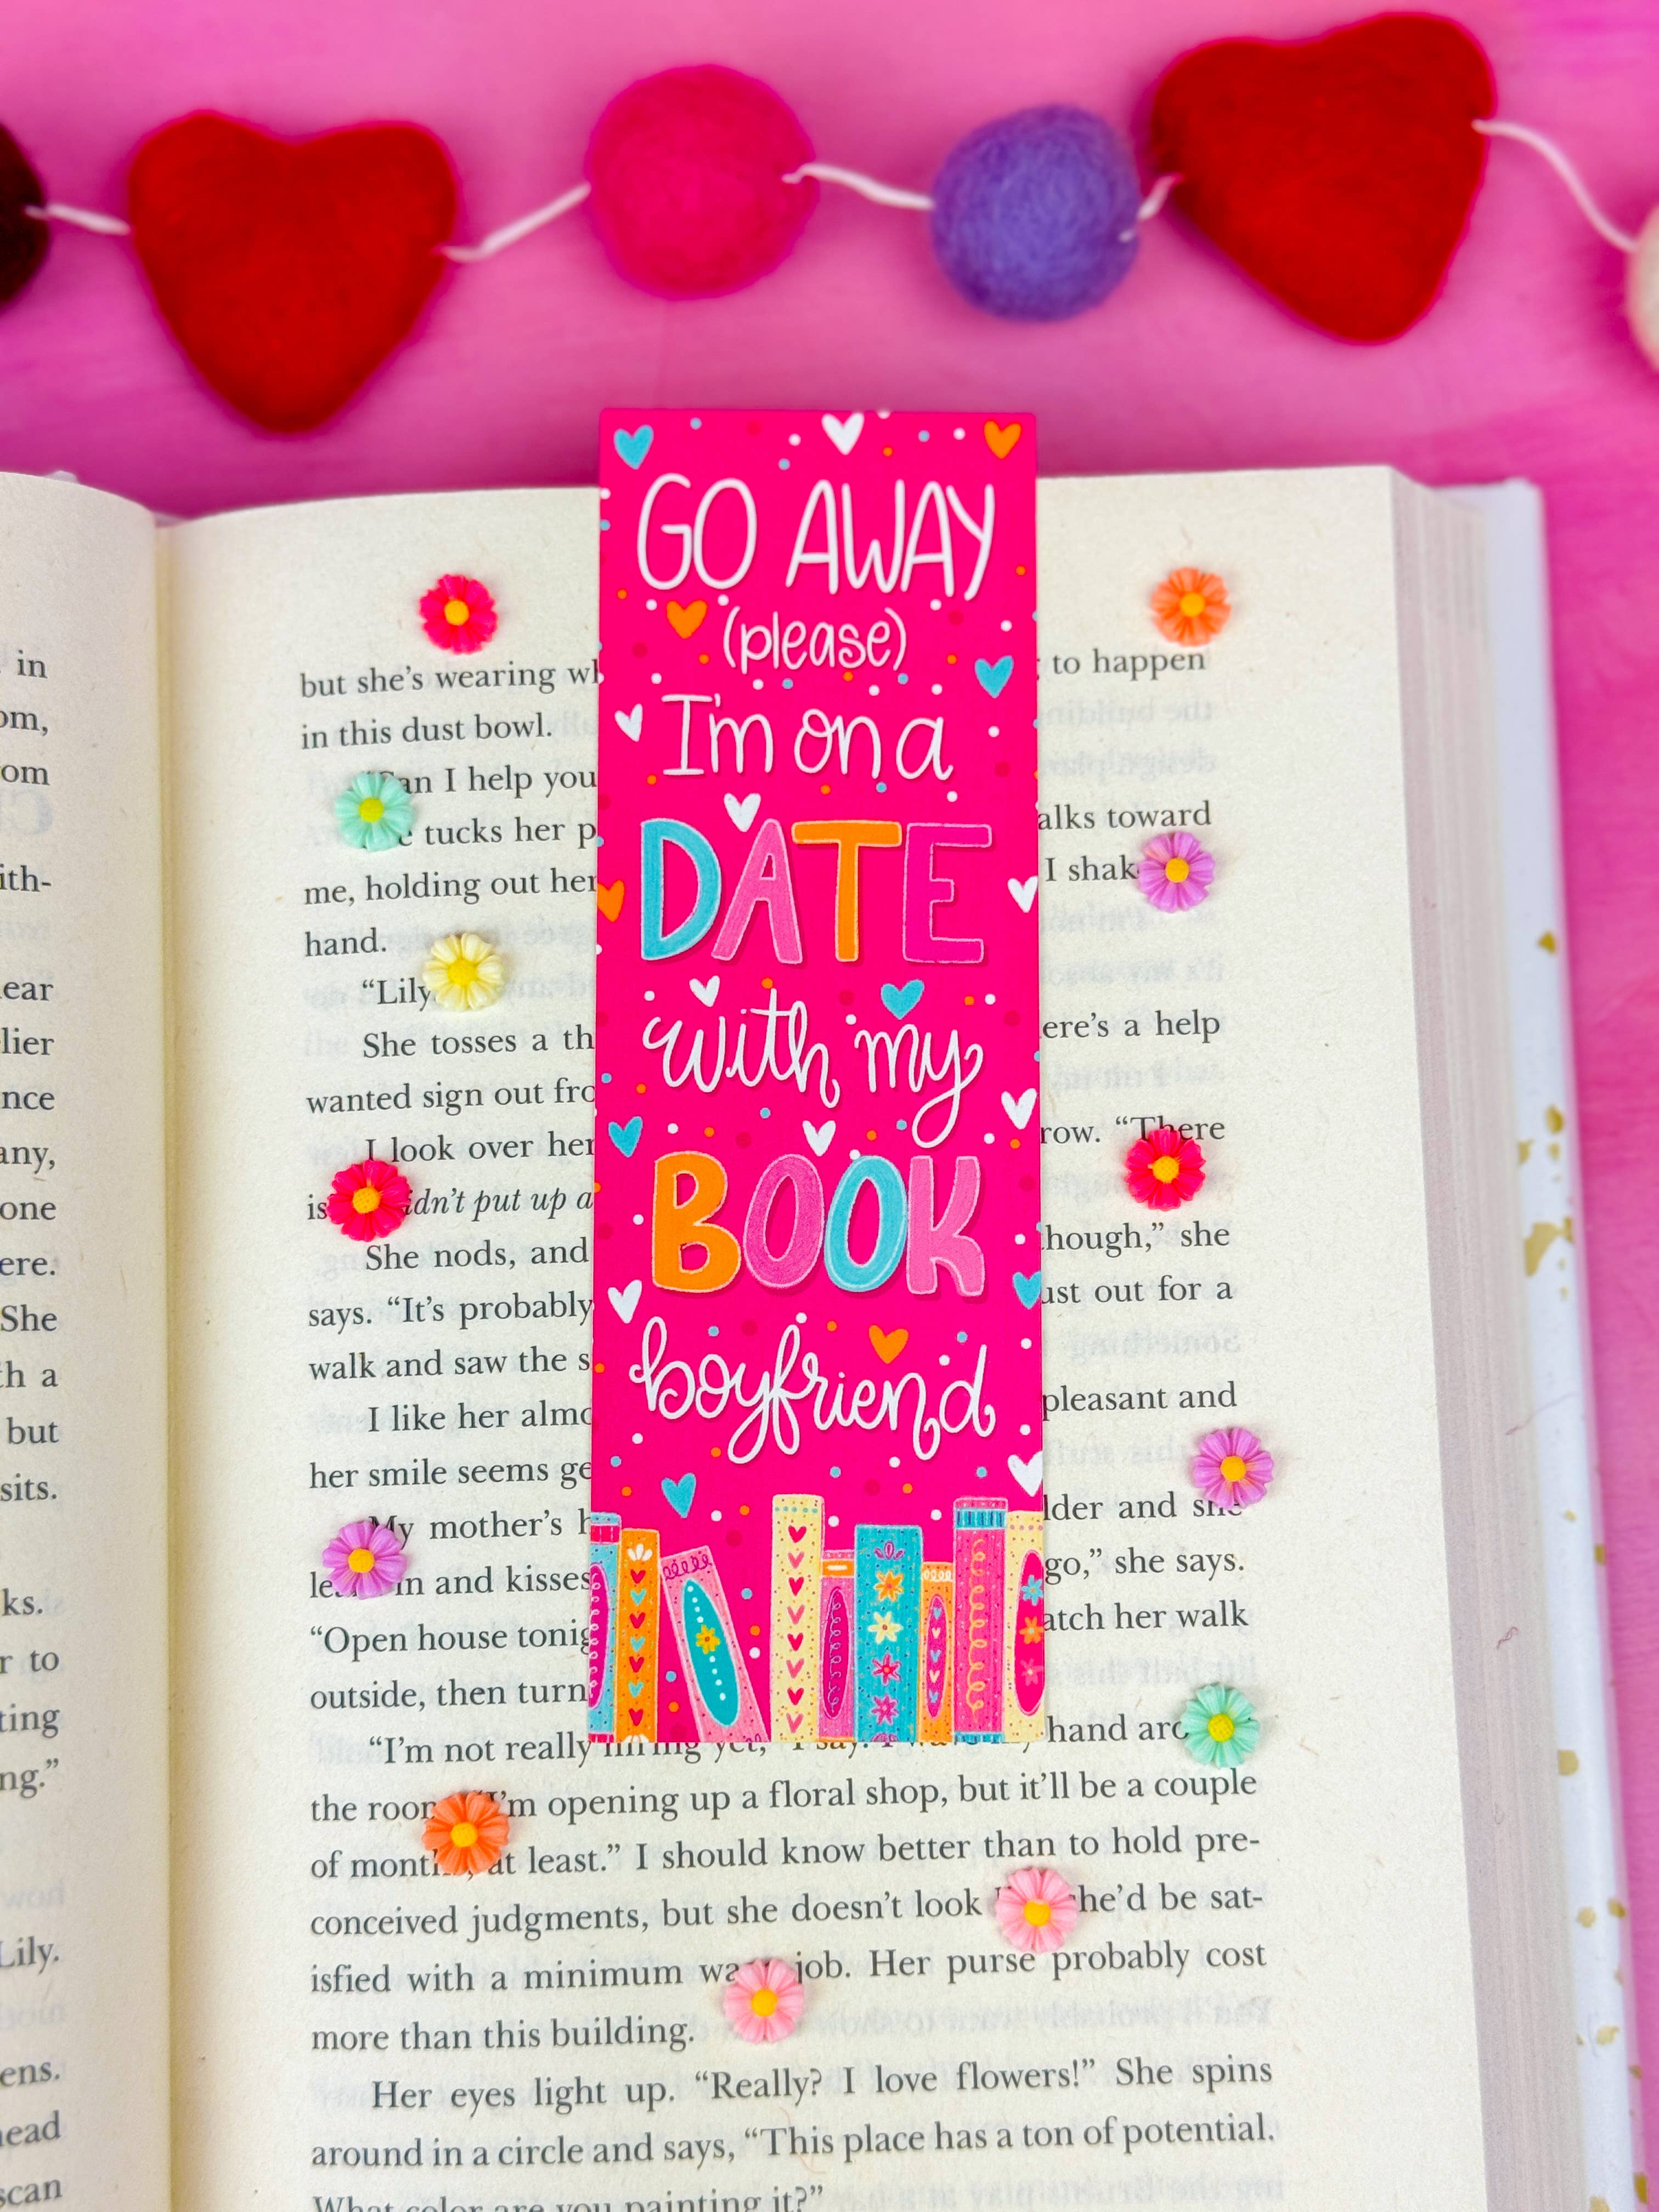 GO AWAY
(please)
I'm on a
DATE
with my
BOOK
boyfriend
in
om,
om
ith-
ear
lier
nce
any,
one
ere.
She
th a
but
sits.
ks.
r to
ting
ng.”
Lily.
ens.
head
scan
but she’s wearing wh to happen
in this dust bowl.
Can I help you
tucks her p alks toward
me, holding out her I shak
hand.
“Lily
She tosses a th ere’s a help
wanted sign out fro
I look over her row. “There
is idn’t put up a
She nods, and though,” she
says. “It’s probably ust out for a
walk and saw the s
I like her almo pleasant and
her smile seems ge
My mother’s h lder and she
le in and kisses go,” she says.
“Open house tonig atch her walk
outside, then turn
“I’m not really hiring yet,” I say. I wave my hand aro
the room “I’m opening up a floral shop, but it’ll be a couple
of months, at least.” I should know better than to hold pre-
conceived judgments, but she doesn’t look she’d be sat-
isfied with a minimum wa job. Her purse probably cost
more than this building.
Her eyes light up. “Really? I love flowers!” She spins
around in a circle and says, “This place has a ton of potential.
What color are you painting it?”